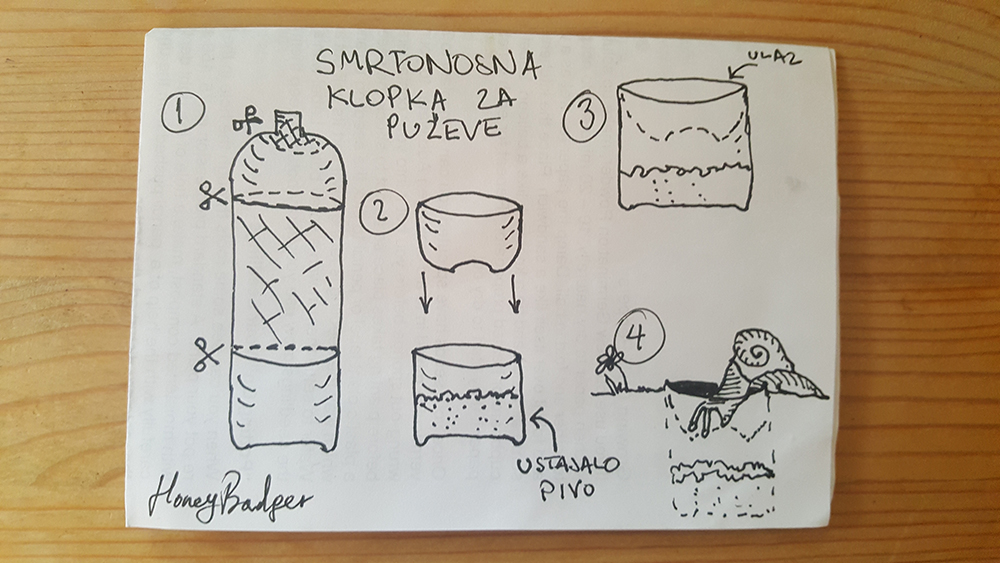 SMRTONOSNA
KLOPKA ZA
PUŽEVE
1
2
3
ULAZ
4
USTAJALO
PIVO
HoneyBadger